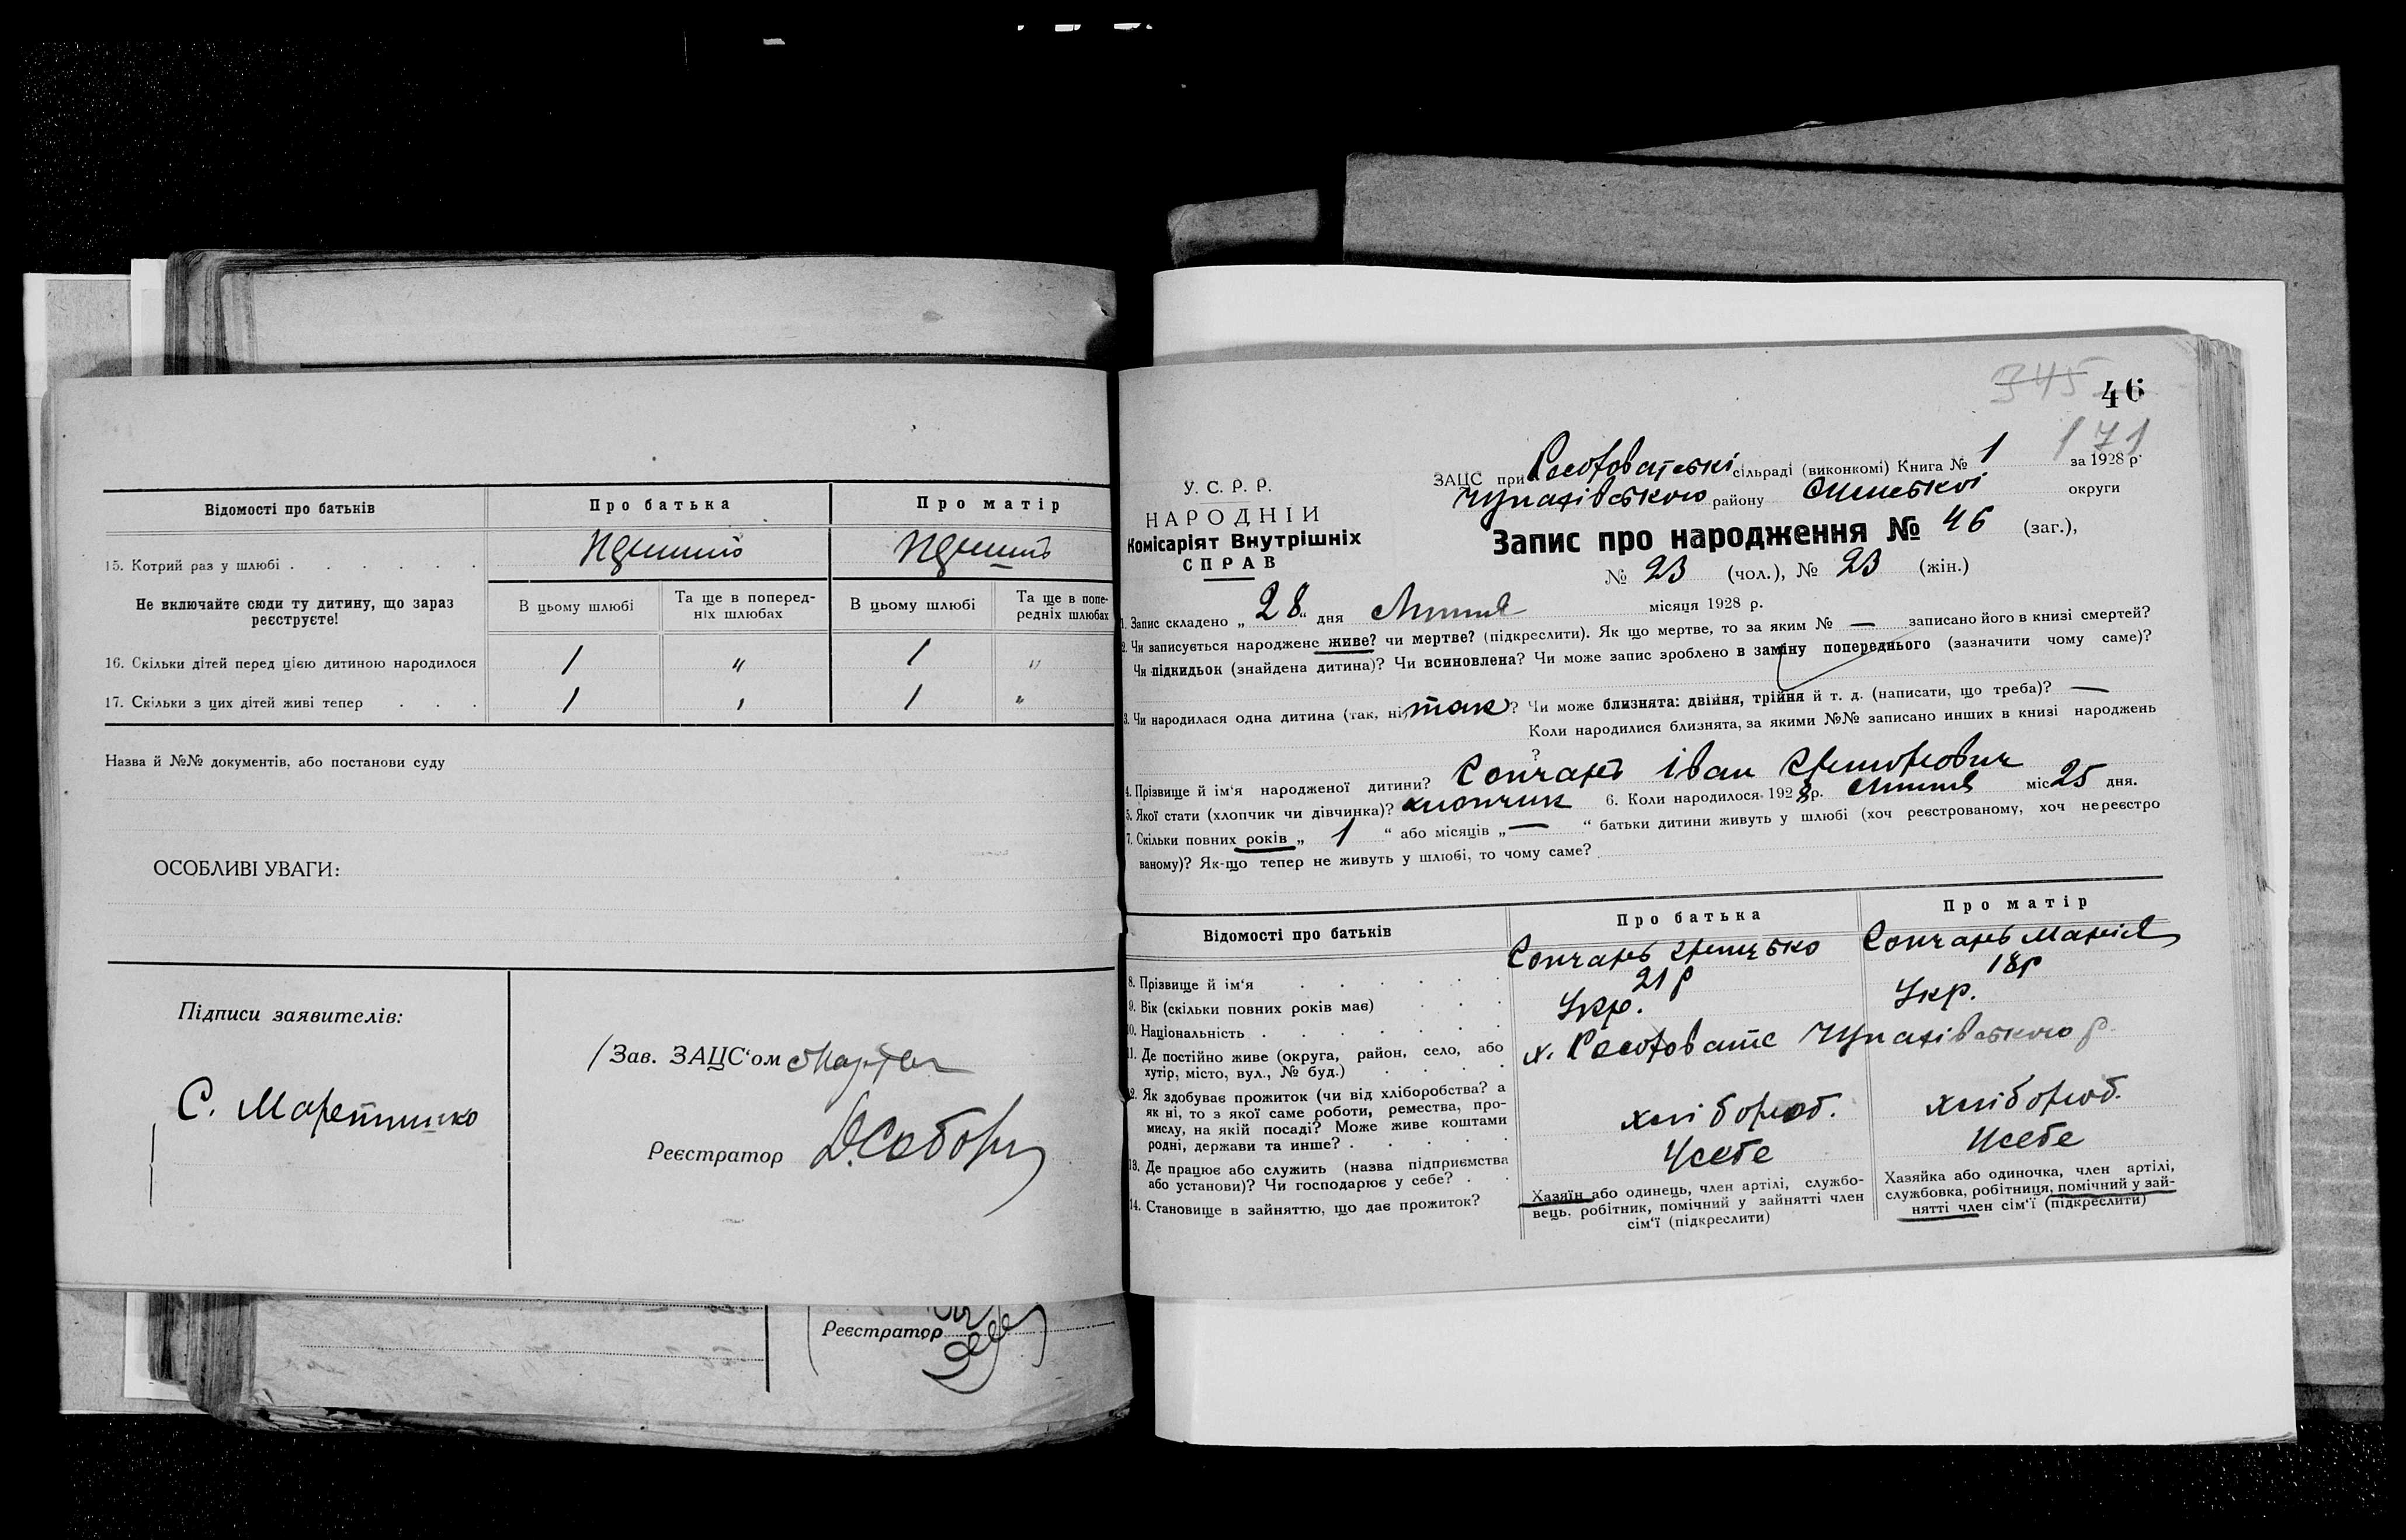 Відомості про батьків
Про батька
Про матір
15. Котрий раз у шлюбі
Не включайте сюди ту дитину, що зараз
реєструєте!
В цьому шлюбі
Та ще в поперед-
ніх шлюбах
В цьому шлюбі
Та ще в попе-
редніх шлюбах
16. Скільки дітей перед цією дитиною народилося
1 " 1 "
17. Скільки з цих дітей живі тепер
1 " 1 "
Назва й №№ документів, або постанови суду
ОСОБЛИВІ УВАГИ:
Підписи заявителів:
Зав. ЗАЦС'ом
Реєстратор
Реєстратор
345 46
171
У. С. Р. Р.
НАРОДНІЙ
Комісаріят Внутрішніх
СПРАВ
ЗАЦС при сільраді (виконкомі) Книга № 1 за 1928 р.
району округи
Запис про народження № 46 (заг.),
№ 23 (чол.), № 23 (жін.)
1. Запис складено „ 28 “ дня Липня місяця 1928 р.
2. Чи записується народжене живе? чи мертве? (підкреслити). Як що мертве, то за яким № — записано його в книзі смертей?
Чи підкидьок (знайдена дитина)? Чи всиновлена? Чи може запис зроблено в заміну попереднього (зазначити чому саме)?
3. Чи народилася одна дитина (так, ні) так? Чи може близнята: двійня, трійня й т. д. (написати, що треба)? —
Коли народилися близнята, за якими №№ записано инших в книзі народжень
?
4. Прізвище й ім'я народженої дитини? Іван
5. Якої стати (хлопчик чи дівчинка)? хлопчик 6. Коли народилося 1928 р. Липня міс 25 дня.
7. Скільки повних років „ 1 “ або місяців „ — “ батьки дитини живуть у шлюбі (хоч реєстрованому, хоч нереєстро
ваному)? Як-що тепер не живуть у шлюбі, то чому саме?
Відомості про батьків
Про батька
Про матір
8. Прізвище й ім'я
Марія
9. Вік (скільки повних років має)
21 р
18 р
10. Національність
Укр.
Укр.
11. Де постійно живе (округа, район, село, або
хутір, місто, вул., № буд.)
12. Як здобуває прожиток (чи від хліборобства? а
як ні, то з якої саме роботи, ремества, про-
мислу, на якій посаді? Може живе коштами
родні, держави та инше?
хлібороб.
хлібороб.
13. Де працює або служить (назва підприємства
або установи)? Чи господарює у себе?
Усебе
Усебе
14. Становище в зайняттю, що дає прожиток?
Хазяїн або одинець, член артілі, службо-
вець. робітник, помічний у зайнятті член
сім'ї (підкреслити)
Хазяйка або одиночка, член артілі,
службовка, робітниця, помічний у зай-
нятті член сім'ї (підкреслити)